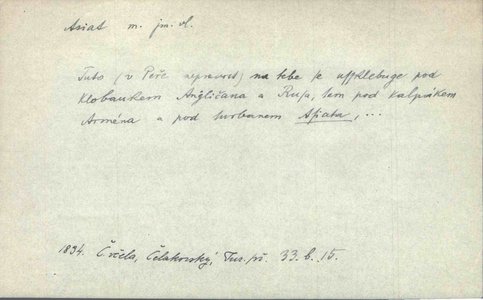 Asiat m. jm. vl.
Tuto (v Peře upravost) na tebe se uffklebuge pod
klobaukem Angličana a Rusa, tam pod kalpákem
Arména a pod turbanem Asiata, ...
1834. Čvčela, Čelakovský, Tur. př. 33. b. 15.